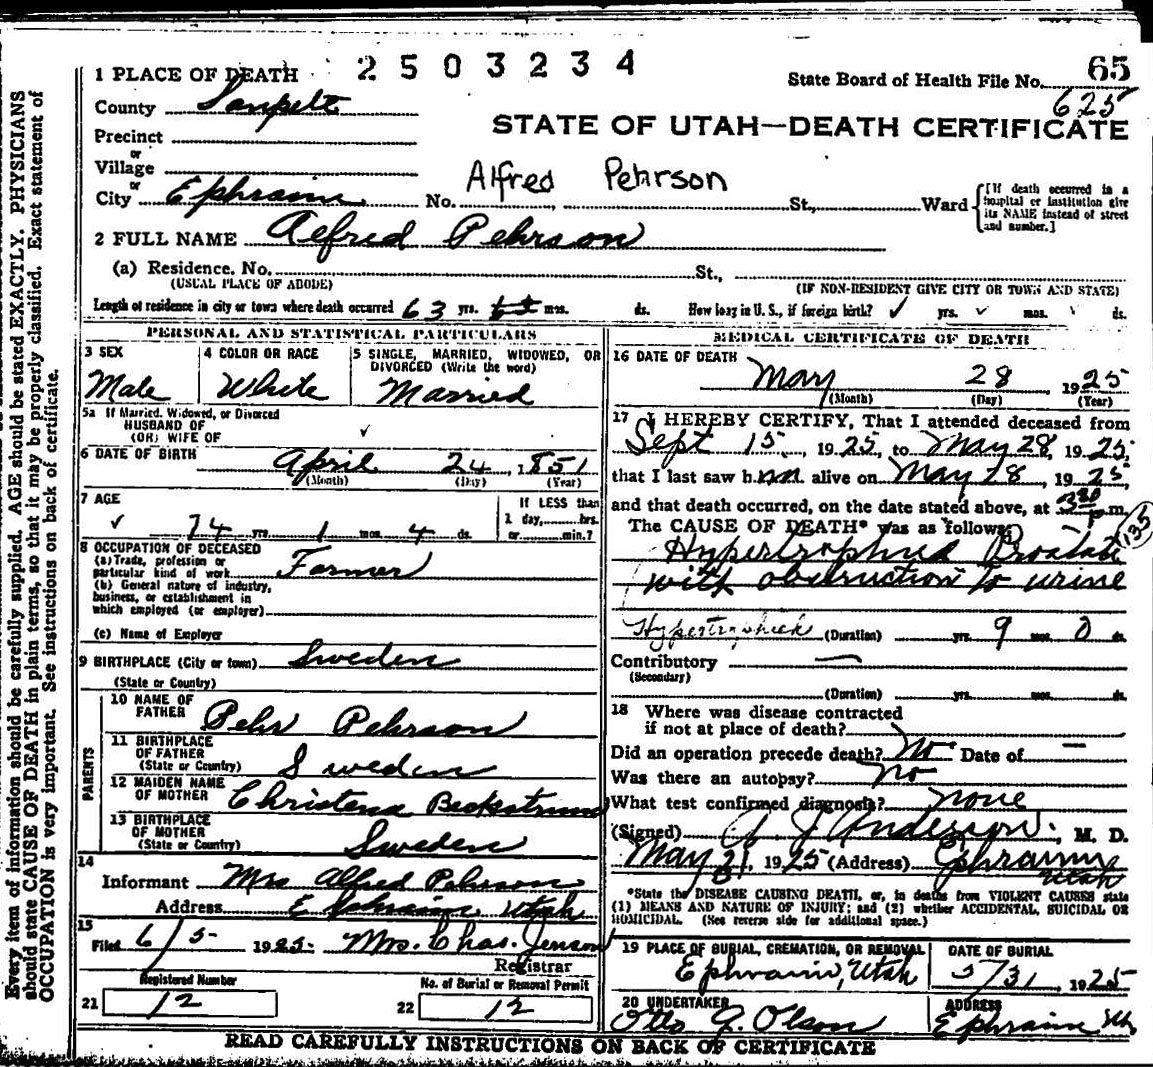 2503234
65
State Board of Health File No.
625
1 PLACE OF DEATH
County Sanpete
STATE OF UTAH—DEATH CERTIFICATE
Precinct
or
Village
or
City Ephraim No. Alfred Pehrson St., Ward
[If death occurred in a hospital or institution give its NAME instead of street and number.]
2 FULL NAME Alfred Pehrson
(a) Residence. No. St.,
(USUAL PLACE OF ABODE) (IF NON-RESIDENT GIVE CITY OR TOWN AND STATE)
Length of residence in city or town where death occurred 63 yrs. mos. ds. How long in U. S., if foreign birth? ✓ yrs. ✓ mos. ds.
PERSONAL AND STATISTICAL PARTICULARS
3 SEX
Male
4 COLOR OR RACE
White
5 SINGLE, MARRIED, WIDOWED, OR
DIVORCED (Write the word)
Married
5a If Married, Widowed, or Divorced
HUSBAND OF
(OR) WIFE OF ✓
6 DATE OF BIRTH April 24, 1851
(Month) (Day) (Year)
7 AGE
If LESS than
1 day, hrs.
✓ 74 yrs. 1 mos. 4 ds. or min.?
8 OCCUPATION OF DECEASED
(a) Trade, profession or
particular kind of work Farmer
(b) General nature of industry,
business, or establishment in
which employed (or employer)
(c) Name of Employer
9 BIRTHPLACE (City or town) Sweden
(State or Country)
PARENTS
10 NAME OF
FATHER Pehr Pehrson
11 BIRTHPLACE
OF FATHER
(State or Country) Sweden
12 MAIDEN NAME
OF MOTHER Christena
13 BIRTHPLACE
OF MOTHER
(State or Country) Sweden
14
Informant Mrs Alfred Pehrson
Address Ephraim Utah
15
Filed 6/5 1925 Mrs. Chas. Jenson
Registrar
Registered Number
21 12
No. of Burial or Removal Permit
22 12
MEDICAL CERTIFICATE OF DEATH
16 DATE OF DEATH
May 28, 1925
(Month) (Day) (Year)
17 I HEREBY CERTIFY, That I attended deceased from
Sept 15, 1925, to May 28, 1925,
that I last saw him alive on May 28, 1925,
and that death occurred, on the date stated above, at p.m.
The CAUSE OF DEATH* was as follows:
135
Hypertrophied Prostate
with obstruction to urine
(Duration) yrs. 9 mos. 0 ds.
Contributory —
(Secondary)
(Duration) yrs. mos. ds.
18 Where was disease contracted
if not at place of death?
Did an operation precede death? No Date of —
Was there an autopsy? no
What test confirmed diagnosis? none
(Signed) A J Anderson, M. D.
May 31, 1925 (Address) Ephraim
Utah
*State the DISEASE CAUSING DEATH, or, in deaths from VIOLENT CAUSES state
(1) MEANS AND NATURE OF INJURY; and (2) whether ACCIDENTAL, SUICIDAL OR
HOMICIDAL. (See reverse side for additional space.)
19 PLACE OF BURIAL, CREMATION, OR REMOVAL
Ephraim, Utah
DATE OF BURIAL
5/31, 1925
20 UNDERTAKER
Otto J. Olson
ADDRESS
Ephraim Ut
READ CAREFULLY INSTRUCTIONS ON BACK OF CERTIFICATE
Every item of information should be carefully supplied. AGE should be stated EXACTLY. PHYSICIANS
should state CAUSE OF DEATH in plain terms, so that it may be properly classified. Exact statement of
OCCUPATION is very important. See instructions on back of certificate.